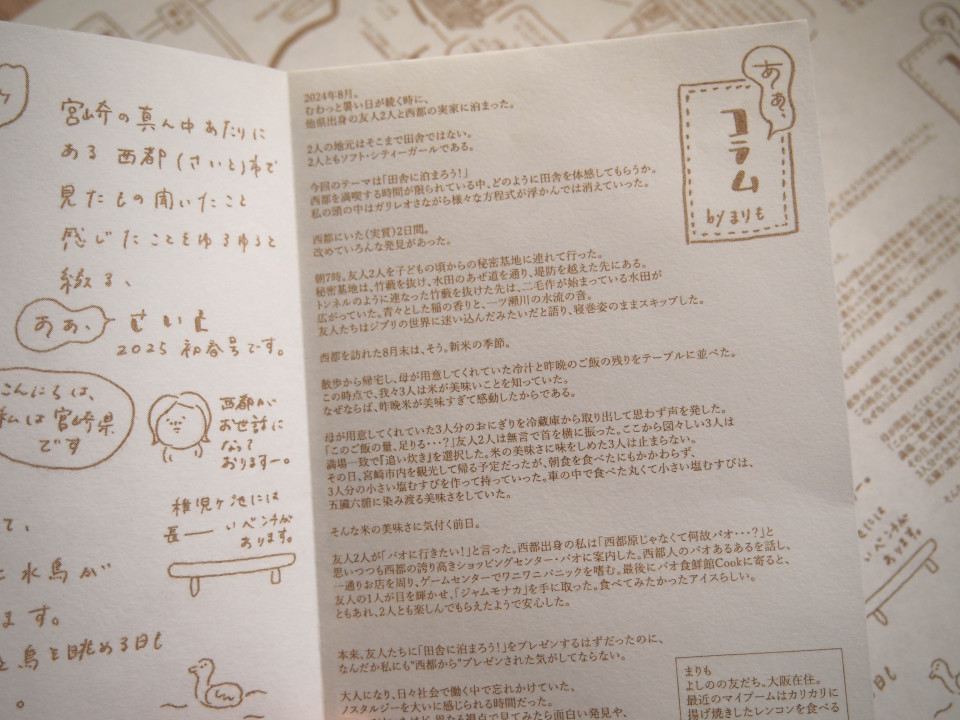 宮崎の真ん中あたりに
ある西都(さいと)市で
見たもの聞いたこと
感じたことをゆるゆると
綴る、
ああ、さいと
2025 初春号です。
こんにちは、
私は宮崎県
です
西都が
お世話に
なって
おりますー。
稚児ヶ池には
長――いベンチが
あります。
て、
水鳥が
ます。
鳥を眺める日も
。
ああ、
コラム
by まりも
2024年8月。
むわっと暑い日が続く時に、
他県出身の友人2人と西都の実家に泊まった。
2人の地元はそこまで田舎ではない。
2人ともソフト・シティーガールである。
今回のテーマは「田舎に泊まろう!」
西都を満喫する時間が限られている中、どのように田舎を体感してもらうか。
私の頭の中はガリレオさながら様々な方程式が浮かんでは消えていった。
西都にいた(実質)2日間。
改めていろんな発見があった。
朝7時、友人2人を子どもの頃からの秘密基地に連れて行った。
秘密基地は、竹藪を抜け、水田のあぜ道を通り、堤防を越えた先にある。
トンネルのように連なった竹藪を抜けた先は、二毛作が始まっている水田が
広がっていた。青々とした稲の香りと、一ツ瀬川の水流の音。
友人たちはジブリの世界に迷い込んだみたいだと語り、寝巻姿のままスキップした。
西都を訪れた8月末は、そう。新米の季節。
散歩から帰宅し、母が用意してくれていた冷汁と昨晩のご飯の残りをテーブルに並べた。
この時点で、我々3人は米が美味いことを知っていた。
なぜならば、昨晩米が美味すぎて感動したからである。
母が用意してくれていた3人分のおにぎりを冷蔵庫から取り出して思わず声を発した。
「このご飯の量、足りる・・・?」友人2人は無言で首を横に振った。ここから図々しい3人は
満場一致で『追い炊き』を選択した。米の美味さに味をしめた3人は止まらない。
その日、宮崎市内を観光して帰る予定だったが、朝食を食べたにもかかわらず、
3人分の小さい塩むすびを作って持っていった。車の中で食べた丸くて小さい塩むすびは、
五臓六腑に染み渡る美味さをしていた。
そんな米の美味さに気付く前日。
友人2人が「パオに行きたい!」と言った。西都出身の私は「西都原じゃなくて何故パオ・・・?」と
思いつつも西都の誇り高きショッピングセンター・パオに案内した。西都人のパオあるあるを話し、
一通りお店を周り、ゲームセンターでワニワニパニックを嗜む。最後にパオ食鮮館Cookに寄ると、
友人の1人が目を輝かせ、「ジャムモナカ」を手に取った。食べてみたかったアイスらしい。
ともあれ、2人とも楽しんでもらえたようで安心した。
本来、友人たちに「田舎に泊まろう!」をプレゼンするはずだったのに、
なんだか私にも"西都から"プレゼンされた気がしてならない。
大人になり、日々社会で働く中で忘れかけていた、
ノスタルジーを大いに感じられる時間だった。
異なる視点で見てみたら面白い発見や、
まりも
よしのの友だち。大阪在住。
最近のマイブームはカリカリに
揚げ焼きしたレンコンを食べる